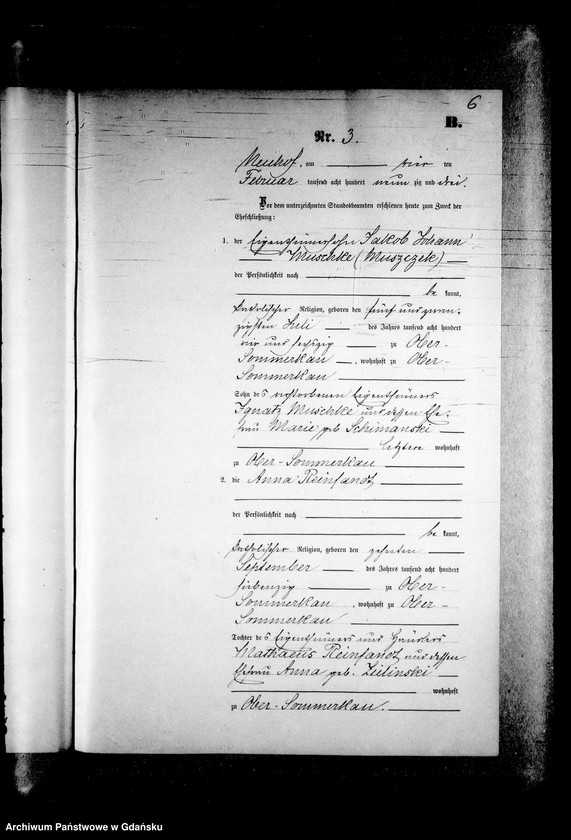 6
B.
Nr. 3.
Neuhof, am vier ten
Februar tausend acht hundert neun zig und drei.
Vor dem unterzeichneten Standesbeamten erschienen heute zum Zweck der
Eheschließung:
1. der Eigenthümersohn Jakob Johann
Muschke (Muszczek)
der Persönlichkeit nach
be kannt,
katholischer Religion, geboren den fünf und zwan-
zigsten Juli des Jahres tausend acht hundert
vier und sechszig zu Ober-
Sommerkau, wohnhaft zu Ober-
Sommerkau
Sohn des verstorbenen Eigenthümers
Ignatz Muschke und dessen Ehe-
frau Marie geb. Schimanski
letztere wohnhaft
zu Ober-Sommerkau
2. die Anna Reinfandt
der Persönlichkeit nach
be kannt,
katholischer Religion, geboren den zehnten
September des Jahres tausend acht hundert
siebenzig zu Ober-
Sommerkau, wohnhaft zu Ober-
Sommerkau
Tochter des Eigenthümers und Häuslers
Mathaeus Reinfandt und dessen
Ehefrau Anna geb. Zielinski
wohnhaft
zu Ober-Sommerkau.
Archiwum Państwowe w Gdańsku